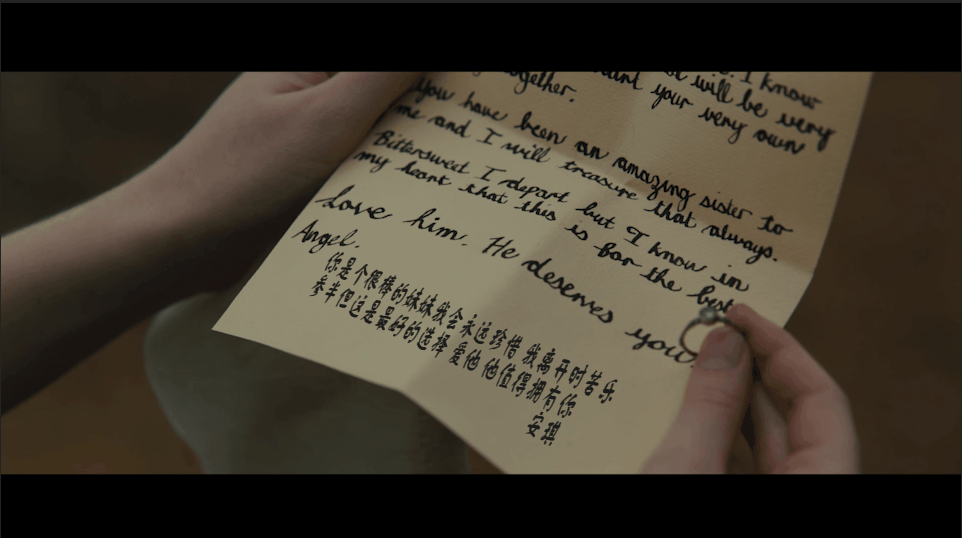 I know
will be very
your very own
together.
You have been an amazing sister to
me and I will treasure that always.
Bittersweet I depart but I know in
my heart that this is for the best
Love him. He deserves you.
Angel.
你是个很棒的妹妹我会永远珍惜 我离开时苦乐
参半但这是最好的选择 爱他 他值得拥有你
安琪